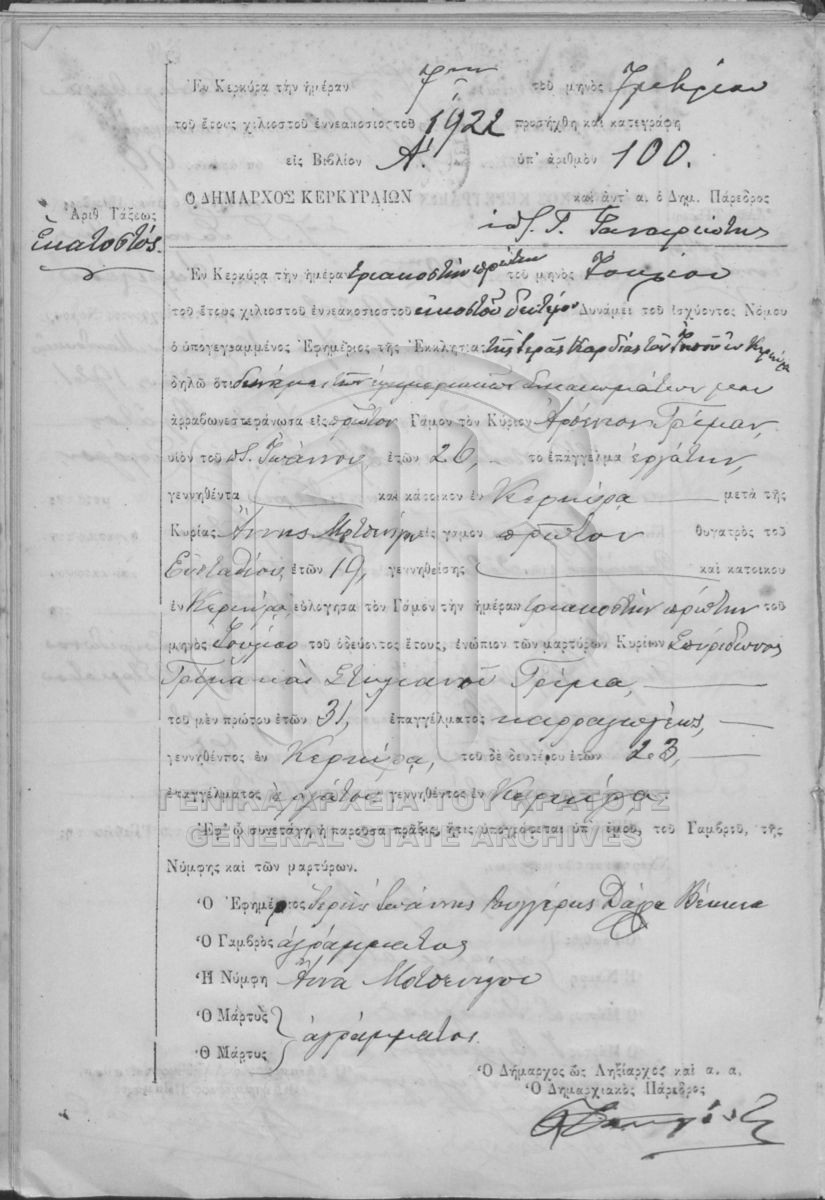 Ἐν Κερκύρᾳ τὴν ἡμέραν 7ην τοῦ μηνὸς
τοῦ ἔτους χιλιοστοῦ ἐννεακοσιοστοῦ 1922 προσήχθη καὶ κατεγράφη
εἰς Βιβλίον Α΄. ὑπ' ἀριθμὸν 100.
Ὁ ΔΗΜΑΡΧΟΣ ΚΕΡΚΥΡΑΙΩΝ καὶ ἀντ' α. ὁ Δημ. Πάρεδρος
Ἀριθ Τάξεως
Ἑκατοστός.
Ἐν Κερκύρᾳ τὴν ἡμέραν τριακοστὴν πρώτην τοῦ μηνὸς Ἰουλίου
τοῦ ἔτους χιλιοστοῦ ἐννεακοσιοστοῦ εἰκοστοῦ δευτέρου Δυνάμει τοῦ ἰσχύοντος Νόμου
ὁ ὑπογεγραμμένος Ἐφημέριος τῆς Ἐκκλησίας τῆς Ἱερᾶς Καρδίας τοῦ Ἰησοῦ ἐν Κερκύρᾳ
δηλῶ ὅτι δυνάμει τῶν ἐφημεριακῶν δικαιωμάτων μου
ἀρραβωνεστεφάνωσα εἰς πρῶτον Γάμον τὸν Κύριον Γρίμαν,
υἱὸν τοῦ Ἰωάννου, ἐτῶν 26, τὸ ἐπάγγελμα ἐργάτην,
γεννηθέντα καὶ κάτοικον ἐν Κερκύρᾳ μετὰ τῆς
Κυρίας Ἄννης εἰς γάμον πρῶτον θυγατρὸς τοῦ
Εὐσταθίου ἐτῶν 19, γεννηθείσης καὶ κατοίκου
ἐν Κερκύρᾳ, εὐλόγησα τὸν Γάμον τὴν ἡμέραν τριακοστὴν πρώτην τοῦ
μηνὸς Ἰουλίου τοῦ ὁδεύοντος ἔτους, ἐνώπιον τῶν μαρτύρων Κυρίων Σπυρίδωνος
Γρίμα καὶ Στυλιανοῦ Γρίμα,
τοῦ μὲν πρώτου ἐτῶν 31, ἐπαγγέλματος καρραγωγέως,
γεννηθέντος ἐν Κερκύρᾳ, τοῦ δὲ δευτέρου ἐτῶν 23,
ἐπαγγέλματος ἐργάτου γεννηθέντος ἐν Κερκύρᾳ
ΓΕΝΙΚΑ ΑΡΧΕΙΑ ΤΟΥ ΚΡΑΤΟΥΣ
Ἐφ' ᾧ συνετάγη ἡ παροῦσα πρᾶξις, ἥτις ὑπογράφεται ὑπ' ἐμοῦ, τοῦ Γαμβροῦ, τῆς
GENERAL STATE ARCHIVES
Νύμφης καὶ τῶν μαρτύρων.
Ὁ Ἐφημέριος Ἱερεὺς Ἰωάννης
Ὁ Γαμβρὸς ἀγράμματος
Ἡ Νύμφη Ἄννα
Ὁ Μάρτυς
ἀγράμματοι
Ὁ Μάρτυς
Ὁ Δήμαρχος ὡς Ληξίαρχος καὶ α. α.
Ὁ Δημαρχιακὸς Πάρεδρος